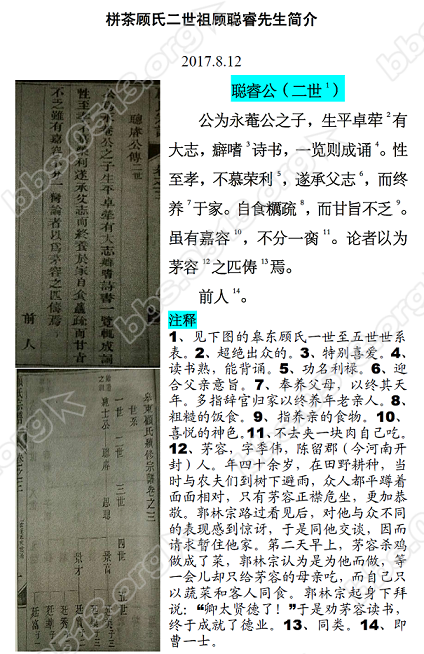 栟茶顾氏二世祖顾聪睿先生简介
2017.8.12
聪睿公（二世1）
公为永菴公之子，生平卓荦2有
大志，癖嗜3诗书，一览则成诵4。性
至孝，不慕荣利5，遂承父志6，而终
养7于家。自食糲疏8，而甘旨不乏9。
虽有嘉容10，不分一脔11。论者以为
茅容12之匹俦13焉。
前人14。
注释
1、见下图的皋东顾氏一世至五世世系
表。2、超绝出众的。3、特别喜爱。4、
读书熟，能背诵。5、功名利禄。6、迎
合父亲意旨。7、奉养父母，以终其天
年。多指辞官归家以终养年老亲人。8、
粗糙的饭食。9、指养亲的食物。10、
喜悦的神色。11、不去夹一块肉自己吃。
12、茅容，字季伟，陈留郡（今河南开
封）人。年四十余岁，在田野耕种，当
时与农夫们到树下避雨，众人都平蹲着
面面相对，只有茅容正襟危坐，更加恭
敬。郭林宗路过看见后，对他与众不同
的表现感到惊讶，于是同他交谈，因而
请求暂住他家。第二天早上，茅容杀鸡
做成了菜，郭林宗认为是为他而做，等
一会儿却只给茅容的母亲吃，而自己只
以蔬菜和客人同食。郭林宗起身下拜
说：“卿太贤德了！”于是劝茅容读书，
终于成就了德业。13、同类。14、即
曹一士。
聰睿公傳 二世
公為永菴公之子生平卓犖有大志癖嗜詩書一覽輒成誦
性至孝不慕榮利遂承父志而終養於家自食糲疏而甘旨
不乏雖有嘉容不分一臠論者以為茅容之匹儔焉
前人
皋東顧氏續修宗譜卷之三
世系
一世
二世
三世
四世
五世